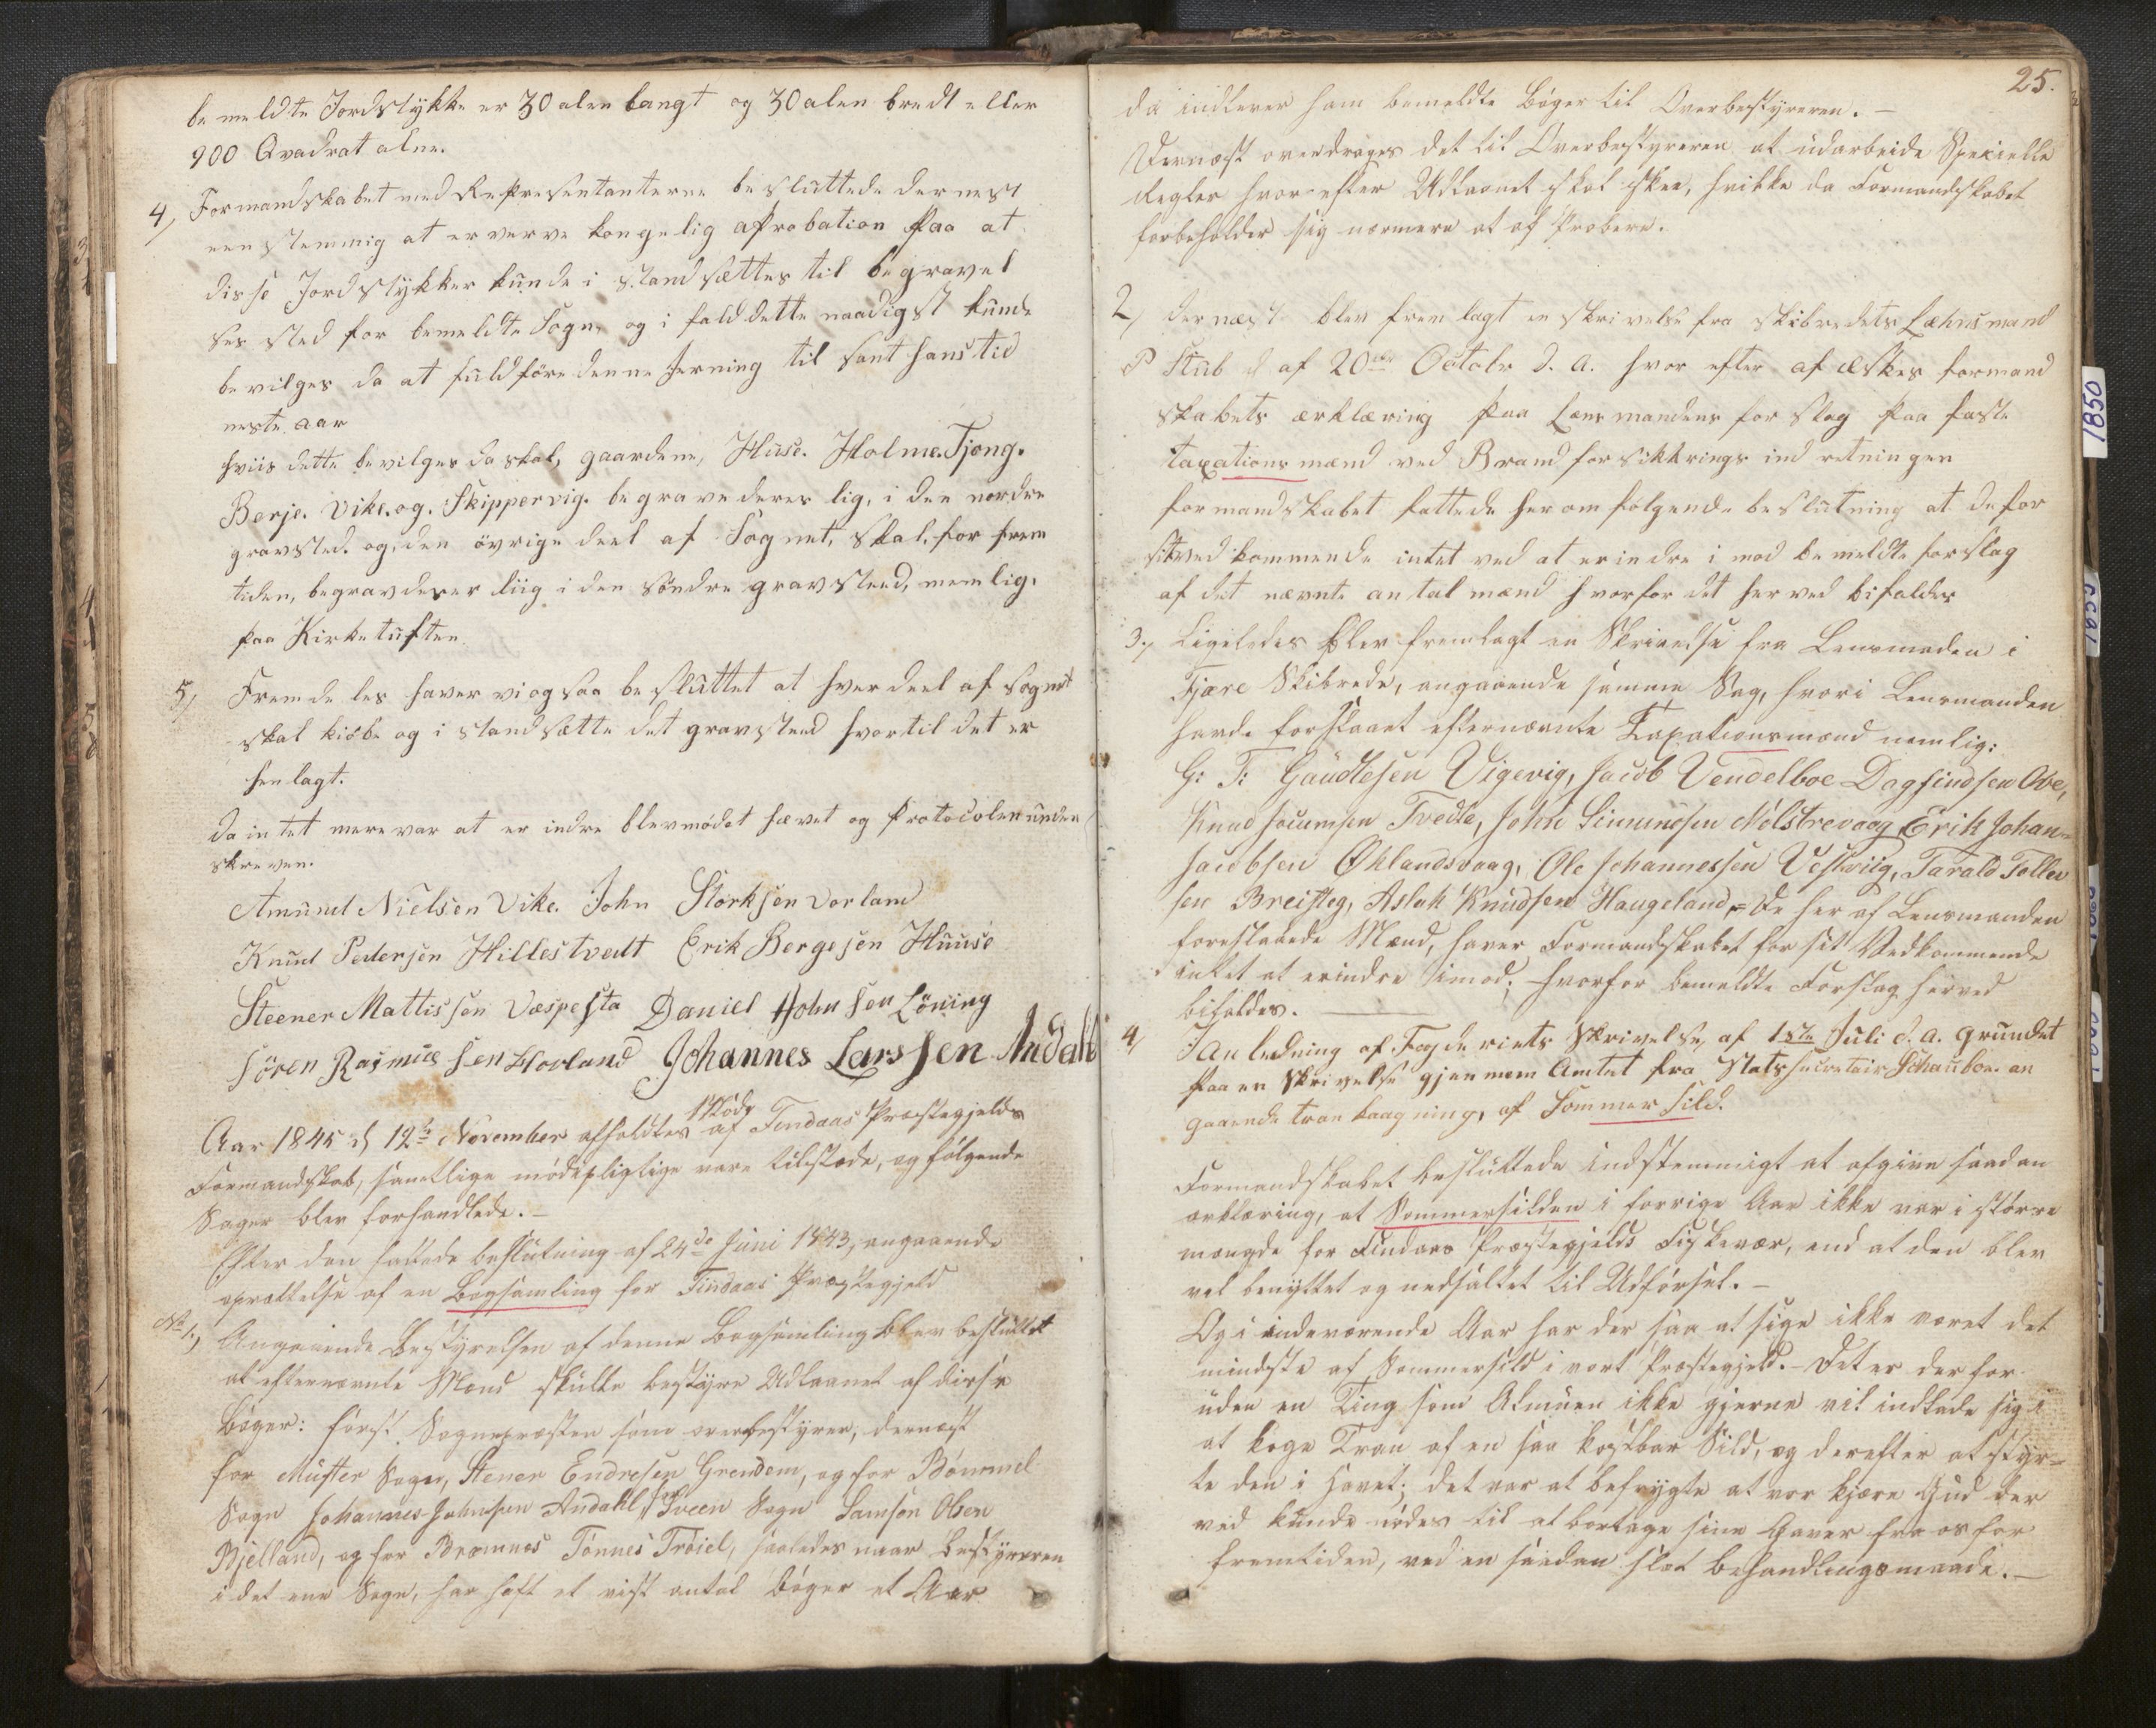 be meldte Jordstykke er 30 alen langt og 30 alen bredt eller
900 Qvadrat alne.
4, Formandskabet med Repræsentanterne besluttede dernest
eenstemmig at erverve kongelig aprobation paa at
disse Jordstykker kunde i stand sættes til begravel
ses sted for bemeldte Sogn, og i fald dette naadigst kunde
bevilges da at fuldföre denne Jerning til sant hans tid
neste aar
hviis dette bevilges da skal, gaardene, Huse. Holme. Tjong.
Berje. Vike. og. Skippervig. begrave deres lig, i den nordre
gravsted. og, den övrige deel af Sognet, skal, for frem
tiden, begrav deres liig i den söndre gravsteed, nemlig.
paa Kirketuften.
5, Fremdeles haver vi ogsaa besluttet at hver deel af Sognet
skal kiöbe og i standsætte det gravsteed hvortil det er
henlagt.
da intet mere var at erindre blev mödet hævet og Protocolen under
skreven.
Amund Nielsen Vike. John Storksen Vorland
Knud Pedersen Hillestvedt Erik Bergesen Huuse
Steener Mattissen Væspesta Daniel Johnsen Löning
Sören Rasmussen Hovland Johannes Larssen Andahl
Aar 1845 d 12te November afholdtes Möde af Findaas Præstegjelds
Formandskab, samtlige mödepligtige vare tilstæde, og fölgende
Sager blev forhandlede. –
Efter den fattede beslutning af 24de Juni 1843, angaaende
oprættelse af en Bogsamling for Findaas Præstegjeld
No 1., Angaaende Bestyrelsen af denne Bogsamling blev besluttet
at efternævnte Mænd skulle bestyre Udlaanet af disse
Böger: först Sognepræsten som overbestyrer, dernæst
for Moster Sogn, Stener Endresen Grendem, og for Bömmel
Sogn Johannes Johnsen Andahl, for Sveen Sogn Samson Olsen
Bjelland, og for Bremnes Tönnes Tröiel, saaledes naar bestyreren
i det ene Sogn, har haft et vist antal böger et Aar
25.
da indlever ham bemeldte Böger til Overbestyreren. –
Dernæst overdrages det til Overbestyreren at udarbeide Specielle
Regler hvorefter Udlaanet skal skee, hvilke da Formandskabet
forbeholder sig nærmere at af Probere.
2, dernæst blev frem lagt en skrivelse fra skibredets Læhnsmand
P Stub d af 20de Octobr d. A. hvor efter af æskes formand
skabets ærklæring paa Lænsmandens forslag paa faste
taxations mænd ved Brandforsikkrings ind retningen
formandskabet fattede herom fölgende beslutning at de for
sitvedkommende intet ved at erindre i mod bemeldte forslag
af det nævnte antal mænd hvorfor det herved bifaldes
3., Ligeledes blev fremlagt en Skrivelse fra Lensmaden i
Fjære Skibrede, angaaende samme Sag, hvori Lensmanden
havde forslaaet efternævnte Taxationsmænd nemlig:
G: T: Gaudtesen Vigevig, Jacob Vendelboe Dagfindsen Ove,
Knud Jocumsen Tvedte, John Simmensen Mölstrevaag, Erik Johan-
Jacobsen Öhlandsvaag, Ole Johannessen Vestviig, Tarald Tolle
sen Breisteg, Aslak Knudsen Haugeland, = De her af Lensmanden
foreslaaede Mænd, haver Formandskabet for sit Vedkommende
intet at erindre imod; hvorfor bemeldte Forslag herved
bifaldes. –
4, I Anledning af Fogderiets Skrivelse, af 1ste Juli d. a. grundet
paa en skrivelse gjennem Amtet fra Statssecretair Schauboe. an
gaaende trankaagning, af Sommer sild.
Formandskabet besluttede indstemmigt at afgive saadan
ærklæring, at Sommersilden i forrige Aar ikke var i större
mængde for Findaas Præstegjelds Fiskevær, end at den blev
vel benyttet og nedsaltet til Udförsel. –
Og i indeværende Aar har der saa at sige ikke været det
mindste af Sommersild i vort Præstegjeld. – Det er der for
uden en Ting som Almuen ikke gjerne vil indlade sig i
at koge Tran af en saa kostbar Sild, og derefter at styr-
te den i Havet; det var at befrygte at vor kjære Gud der
ved kunde nödes til at bortage sine Gaver fra os for
fremtiden, ved en saadan slet behandlingsmaade. –
1850